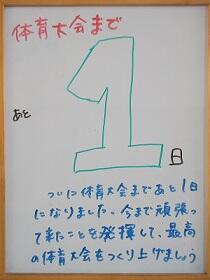 体育大会まで
あと
1
日
ついに体育大会まであと1日
になりました。今まで頑張っ
て来たことを発揮して、最高
の体育大会をつくり上げましょう